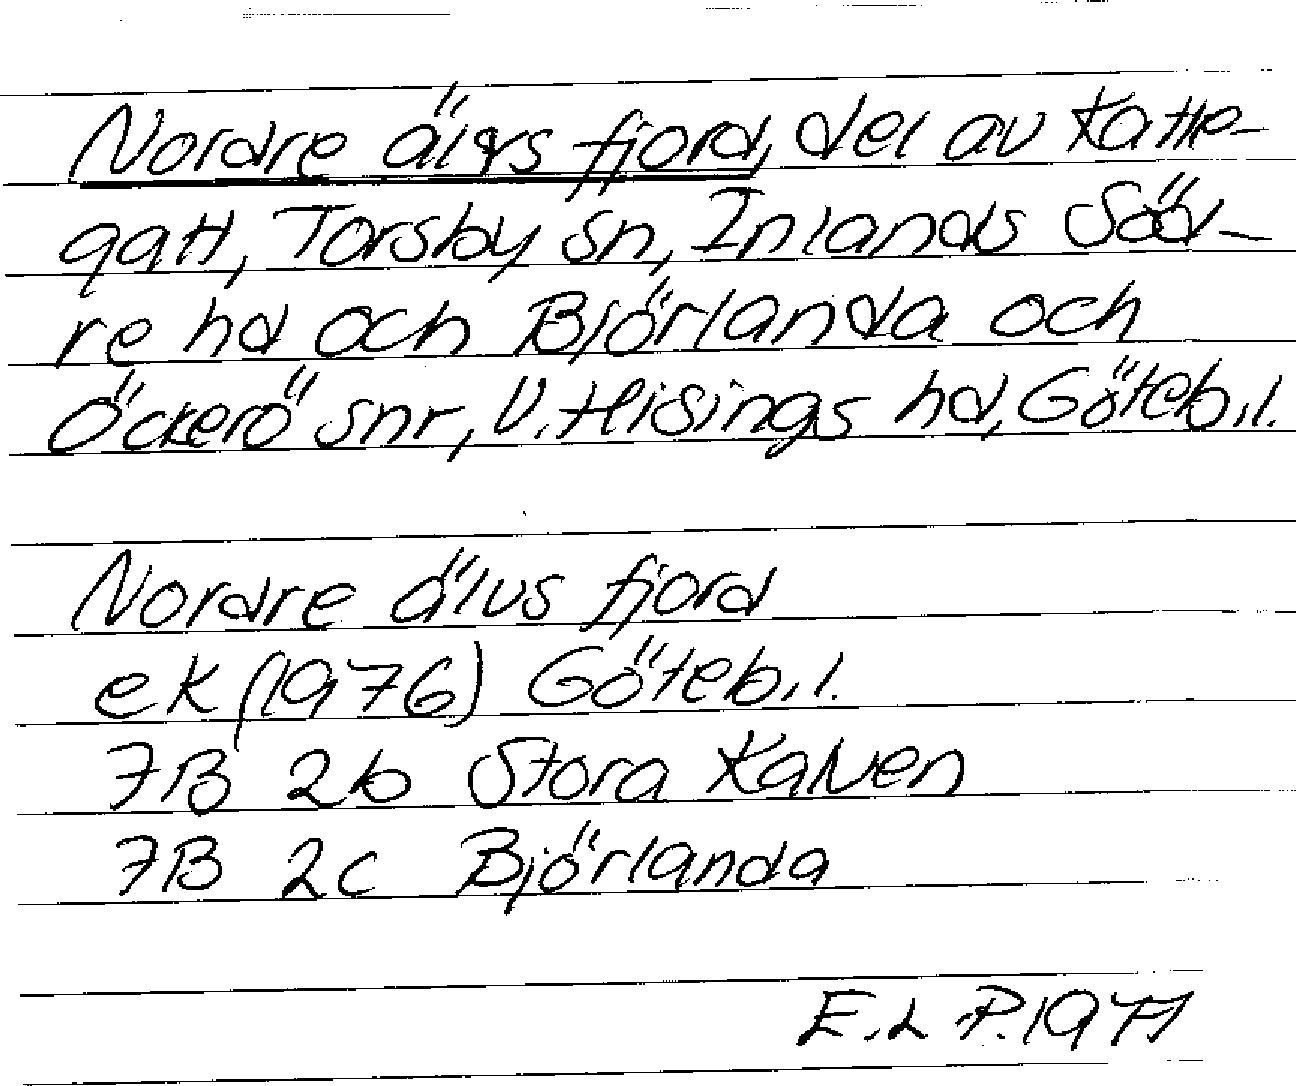 Nordre älvs fjord, del av Katte-
gatt, Torsby sn, Inlands Söd-
re hd och Björlanda och
Öckerö snr, V. Hisings hd, Göteb.l.
Nordre älvs fjord
ek (1976) Göteb.l.
7B 2b Stora Kalven
7B 2c Björlanda
E.L P. 1977